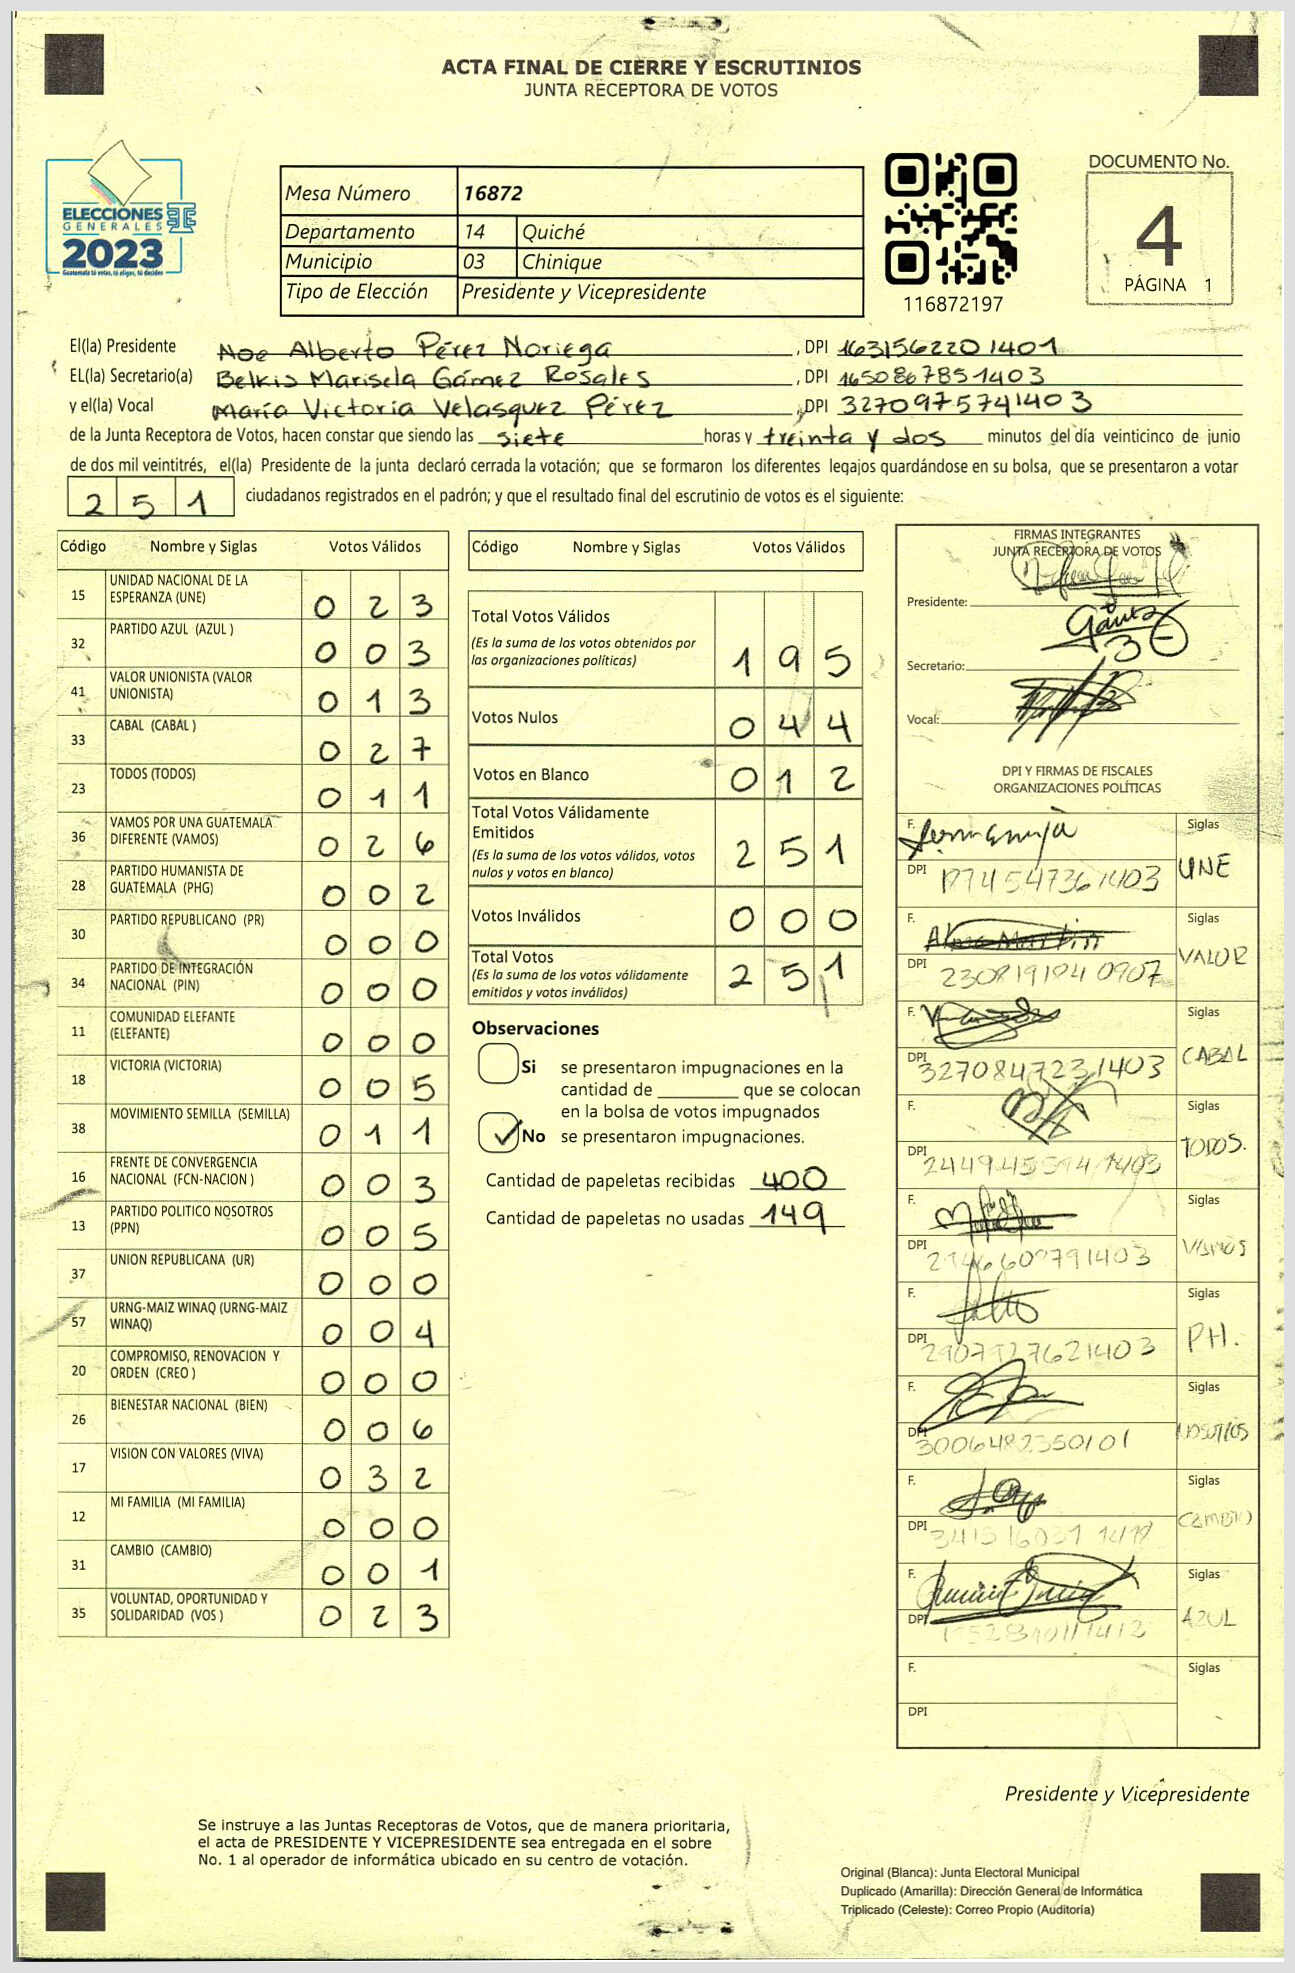 ACTA FINAL DE CIERRE Y ESCRUTINIOS
JUNTA RECEPTORA DE VOTOS
ELECCIONES
GENERALES
2023
Guatemala tú votas, tú eliges, tú decides
Mesa Número 16872
Departamento 14 Quiché
Municipio 03 Chinique
Tipo de Elección Presidente y Vicepresidente
116872197
DOCUMENTO No.
4
PÁGINA 1
El(la) Presidente Noe Alberto Pérez Noriega, DPI 1631562201401
EL(la) Secretario(a) Belkis Marisela Gámez Rosales, DPI 1650867851403
y el(la) Vocal María Victoria Velasquez Pérez, DPI 3270975741403
de la Junta Receptora de Votos, hacen constar que siendo las siete horas y treinta y dos minutos del día veinticinco de junio
de dos mil veintitrés, el(la) Presidente de la junta declaró cerrada la votación; que se formaron los diferentes legajos quardándose en su bolsa, que se presentaron a votar
251 ciudadanos registrados en el padrón; y que el resultado final del escrutinio de votos es el siguiente:
Código Nombre y Siglas Votos Válidos
15 UNIDAD NACIONAL DE LA ESPERANZA (UNE) 023
32 PARTIDO AZUL (AZUL ) 003
41 VALOR UNIONISTA (VALOR UNIONISTA) 013
33 CABAL (CABAL ) 027
23 TODOS (TODOS) 011
36 VAMOS POR UNA GUATEMALA DIFERENTE (VAMOS) 026
28 PARTIDO HUMANISTA DE GUATEMALA (PHG) 002
30 PARTIDO REPUBLICANO (PR) 000
34 PARTIDO DE INTEGRACIÓN NACIONAL (PIN) 000
11 COMUNIDAD ELEFANTE (ELEFANTE) 000
18 VICTORIA (VICTORIA) 005
38 MOVIMIENTO SEMILLA (SEMILLA) 011
16 FRENTE DE CONVERGENCIA NACIONAL (FCN-NACION ) 003
13 PARTIDO POLITICO NOSOTROS (PPN) 005
37 UNION REPUBLICANA (UR) 000
57 URNG-MAIZ WINAQ (URNG-MAIZ WINAQ) 004
20 COMPROMISO, RENOVACION Y ORDEN (CREO ) 000
26 BIENESTAR NACIONAL (BIEN) 006
17 VISION CON VALORES (VIVA) 032
12 MI FAMILIA (MI FAMILIA) 000
31 CAMBIO (CAMBIO) 001
35 VOLUNTAD, OPORTUNIDAD Y SOLIDARIDAD (VOS ) 023
Código Nombre y Siglas Votos Válidos
Total Votos Válidos
(Es la suma de los votos obtenidos por las organizaciones políticas) 195
Votos Nulos 044
Votos en Blanco 012
Total Votos Válidamente Emitidos
(Es la suma de los votos válidos, votos nulos y votos en blanco) 251
Votos Inválidos 000
Total Votos
(Es la suma de los votos válidamente emitidos y votos inválidos) 251
Observaciones
Si se presentaron impugnaciones en la
cantidad de ________ que se colocan
en la bolsa de votos impugnados
No se presentaron impugnaciones.
Cantidad de papeletas recibidas 400
Cantidad de papeletas no usadas 149
FIRMAS INTEGRANTES
JUNTA RECEPTORA DE VOTOS
Presidente:
Secretario:
Vocal:
DPI Y FIRMAS DE FISCALES
ORGANIZACIONES POLÍTICAS
F. Siglas
DPI UNE
F. Siglas
DPI VALOR
F. Siglas
DPI 3270847231403 CABAL
F. Siglas
DPI TODOS.
F. Siglas
DPI VAMOS
F. Siglas
DPI PH.
F. Siglas
DPI 3006482350101 NOSOTROS
F. Siglas
DPI CAMBIO
F. Siglas
DPI AZUL
F. Siglas
DPI
Presidente y Vicepresidente
Se instruye a las Juntas Receptoras de Votos, que de manera prioritaria,
el acta de PRESIDENTE Y VICEPRESIDENTE sea entregada en el sobre
No. 1 al operador de informática ubicado en su centro de votación.
Original (Blanca): Junta Electoral Municipal
Duplicado (Amarilla): Dirección General de Informática
Triplicado (Celeste): Correo Propio (Auditoría)